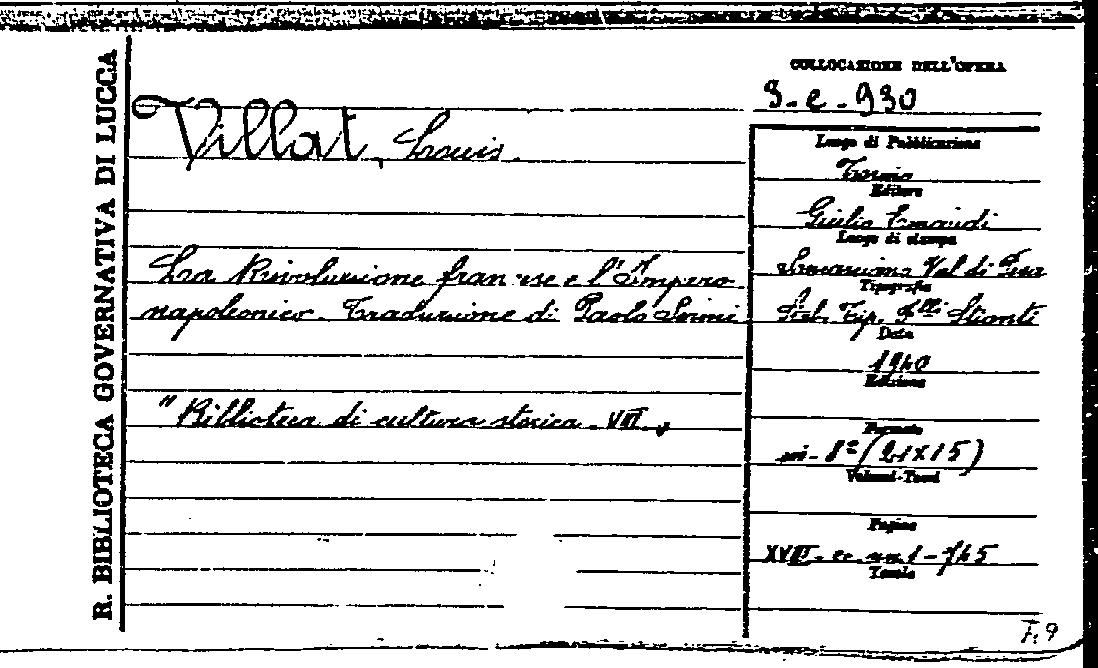 R. BIBLIOTECA GOVERNATIVA DI LUCCA
Villat, Louis.
La Rivoluzione francese e l'Impero
napoleonico. Traduzione di Paolo Serini
"Biblioteca di cultura storica. VIII."
COLLOCAZIONE DELL'OPERA
3-e-930
Luogo di Pubblicazione
Torino
Editore
Giulio Einaudi
Luogo di stampa
Val di
Tipografia
Stab. Tip. F.lli Stianti
Data
1940
Edizione
Formato
in-8º (21x15)
Volumi-Tomi
Pagine
XVIII- e nn. 1-745
Tavole
F. 9